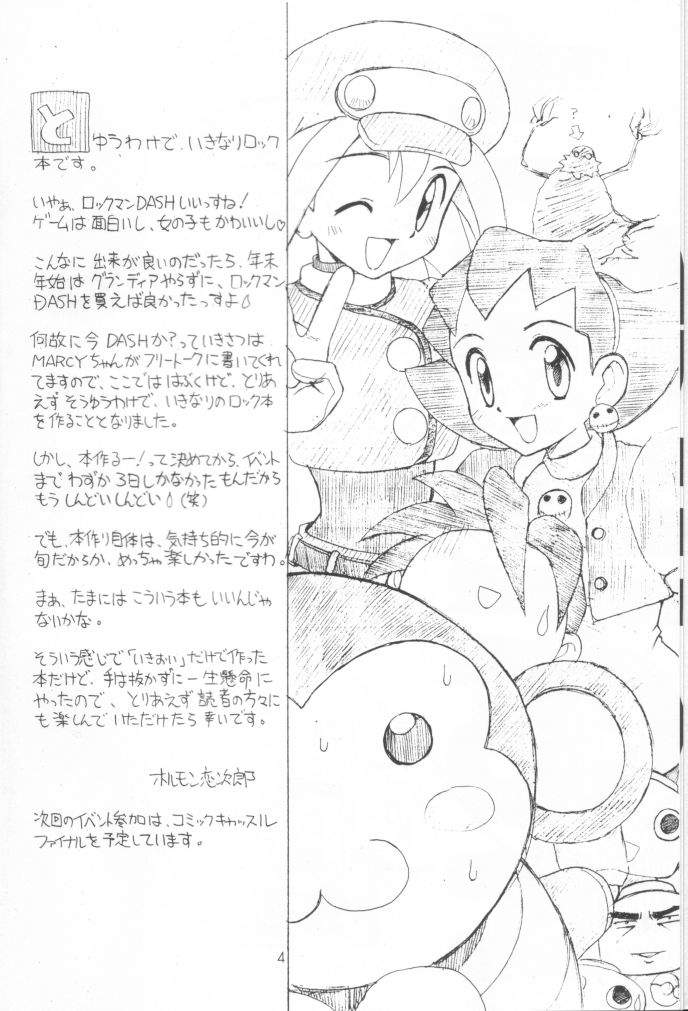 と
ゆうわけで、いきなりロック
本です。
いやぁ、ロックマンDASHいいっすね!
ゲームは面白いし、女の子もかわいいし♡
こんなに出来が良いのだったら、年末
年始はグランディアやらずに、ロックマン
DASHを買えば良かったっすよ
何故に今DASHか?っていきさつは
MARCYちゃんがフリートークに書いてくれ
てますので、ここでははぶくけど、とりあ
えずそうゆうわけで、いきなりのロック本
を作ることとなりました。
しかし、本作るー!って決めてから、イベント
までわずか3日しかなかったもんだから
もうしんどいしんどい(笑)
でも、本作り自体は、気持ち的に今が
旬だからか、めっちゃ楽しかったですわ。
まぁ、たまにはこういう本もいいんじゃ
ないかな。
そういう感じで「いきおい」だけで作った
本だけど、手は抜かずに一生懸命に
やったので、とりあえず読者の方々に
も楽しんでいただけたら幸いです。
オルモン恋次郎
次回のイベント参加は、コミックキャッスル
ファイナルを予定しています。
4
?